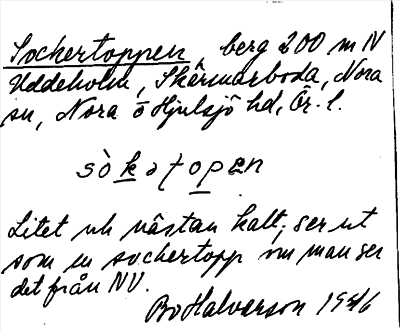 Sockertoppen, berg 200 m N
Uddeholm, Skärmarboda, Nora
sn, Nora o Hjulsjö hd, Ör. l.
sò̀kətòpen
Litet uh nästan kalt; ser ut
som en sockertopp om man ser
det från NV.
Bo Halvarson 1946